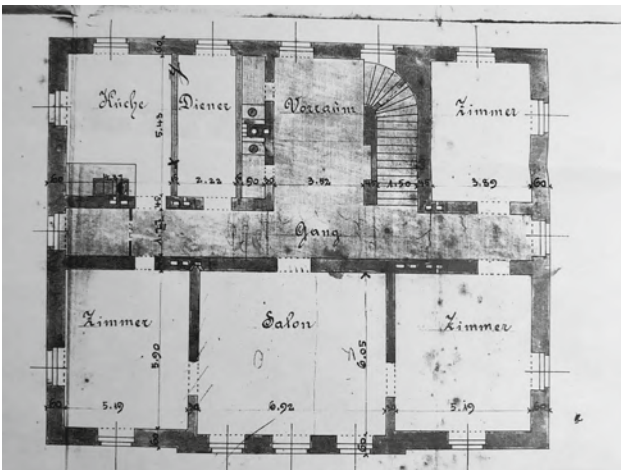 Küche
Diener
Vorraum
Zimmer
60
5.43
2.22
.90
30
3.52
45
1.50
45
3.89
60
Gang
Zimmer
Salon
Zimmer
5.90
6.05
60
5.19
6.92
5.19
60
60